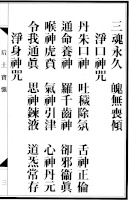 三魂永久　魄無喪傾
淨口神咒
丹朱口神　吐穢除氛　舌神正倫
通命養神　羅千齒神　卻邪衞眞
喉神虎賁　氣神引津　心神丹元
令我通眞　思神鍊液　道炁常存
淨身神咒
后土寶懺
三